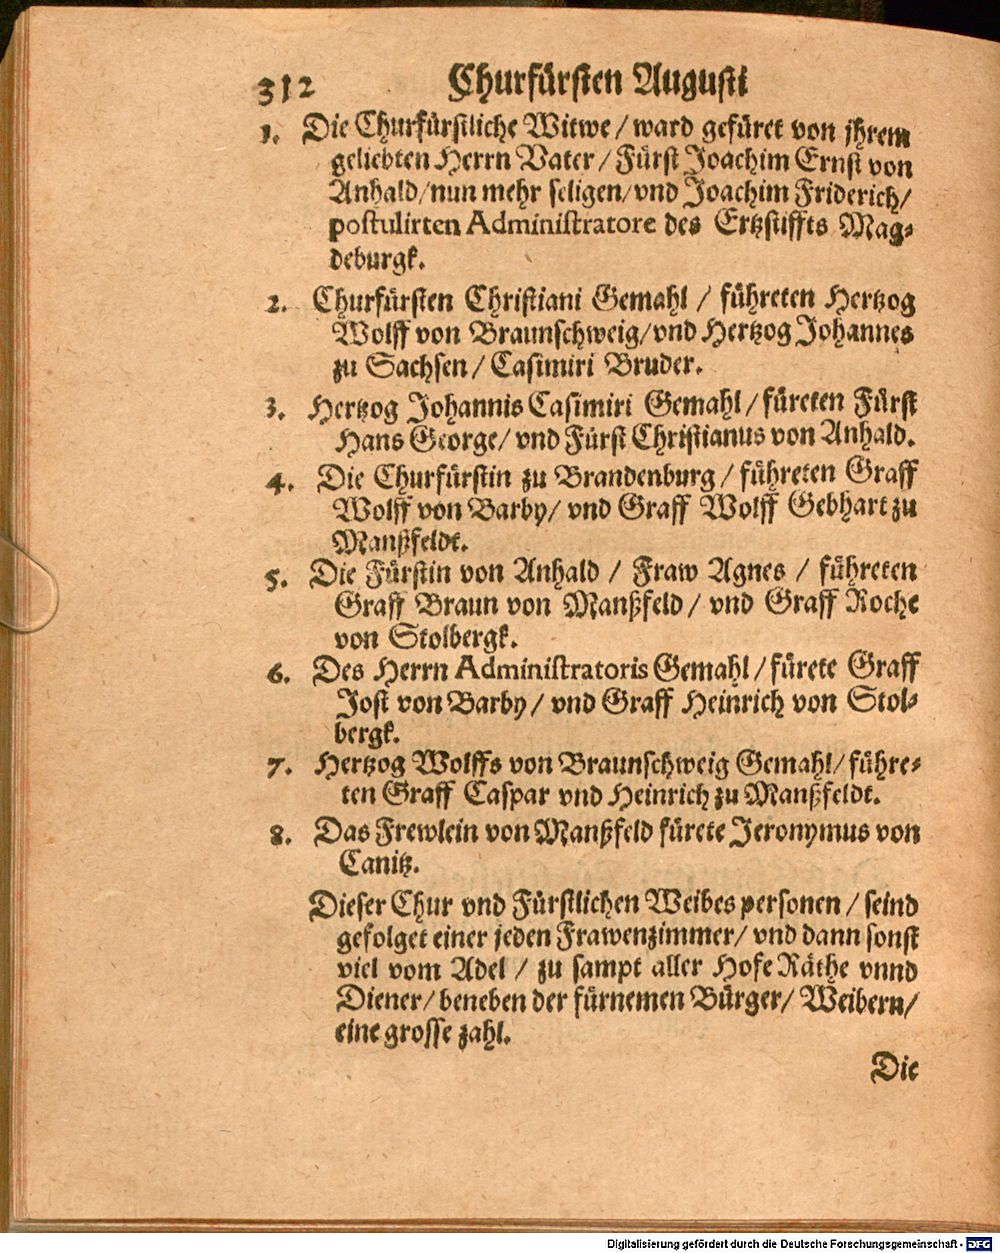 312 Churfürsten Augusti
1. Die Churfürstliche Witwe / ward gefüret von jhrem
geliebten Herrn Vater / Fürst Joachim Ernst von
Anhald / nun mehr seligen / vnd Joachim Friderich /
postulirten Administratore des Ertzstiffts Mag-
deburgk.
2. Churfürsten Christiani Gemahl / führeten Hertzog
Wolff von Braunschweig / vnd Hertzog Johannes
zu Sachsen / Casimiri Bruder.
3. Hertzog Johannis Casimiri Gemahl / füreten Fürst
Hans George / vnd Fürst Christianus von Anhald.
4. Die Churfürstin zu Brandenburg / führeten Graff
Wolff von Barby / vnd Graff Wolff Gebhart zu
Manßfeldt.
5. Die Fürstin von Anhald / Fraw Agnes / führeten
Graff Braun von Manßfeld / vnd Graff Roche
von Stolbergk.
6. Des Herrn Administratoris Gemahl / fürete Graff
Jost von Barby / vnd Graff Heinrich von Stol-
bergk.
7. Hertzog Wolffs von Braunschweig Gemahl / führe-
ten Graff Caspar vnd Heinrich zu Manßfeldt.
8. Das Frewlein von Manßfeld fürete Jeronymus von
Canitz.
Dieser Chur vnd Fürstlichen Weibes personen / seind
gefolget einer jeden Frawenzimmer / vnd dann sonst
viel vom Adel / zu sampt aller Hofe Räthe vnnd
Diener / beneben der fürnemen Bürger / Weibern /
eine grosse zahl.
Die
Digitalisierung gefördert durch die Deutsche Forschungsgemeinschaft - DFG